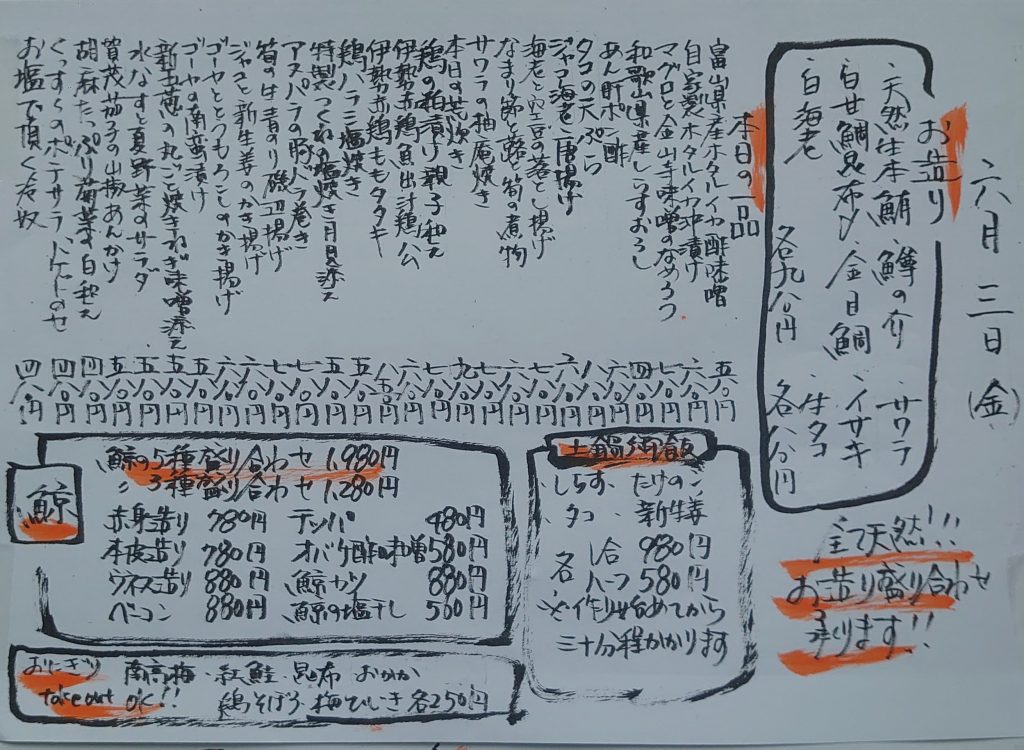 六月三日(金)
お造り
・天然生本鮪・鱒の介・サワラ
・白甘鯛昆布〆・金目鯛・イサキ
・白海老・生タコ
各九八〇円 各八八〇円
全て天然!!
お造り盛り合わせ
承ります!!
本日の一品
富山県産ホタルイカ酢味噌 五八〇円
自家製ホタルイカ沖漬け 六八〇円
マグロと金山寺味噌のなめろう 七八〇円
和歌山県産しらすおろし 四八〇円
あん肝ポン酢 六八〇円
タコの天ぷら 八八〇円
ジャコ海老唐揚げ 六八〇円
海老と空豆の落とし揚げ 七八〇円
なまり節と蕗、筍の煮物 六八〇円
サワラの柚庵焼き 七八〇円
本日の荒炊き 九八〇円
鶏の粕漬け親子和え 七八〇円
伊勢赤鶏魚出汁鶏ハム 六八〇円
伊勢赤鶏ももタタキ 八八〇円
鶏ハラミ塩焼き 五八〇円
特製つくね塩焼き月見添え 五八〇円
アスパラの豚バラ巻き 七八〇円
筍の生青のり磯辺揚げ 六八〇円
ジャコと新生姜のかき揚げ 六八〇円
ゴーヤととうもろこしのかき揚げ
ゴーヤの南蛮漬け
新玉葱の丸ごと焼きねぎ味噌添え
水なすと夏野菜のサラダ
賀茂茄子の山椒あんかけ
胡麻たっぷり菊菜の白和え 四八〇円
くっすくのポテサラトマトのせ 四八〇円
お塩で頂く冷奴 四八〇円
土鍋御飯
しらす、たけのこ
タコ、新生姜
各 一合 980円
ハーフ 580円
※作り始めてから
三十分程かかります
鯨
鯨の5種盛り合わせ 1,980円
〃 3種盛り合わせ 1,280円
赤身造り 780円 テッパ 480円
本皮造り 780円 オバケ酢味噌 580円
ウネス造り 880円 鯨カツ 880円
ベーコン 880円 鯨の塩干し 560円
おにぎり 南高梅・紅鮭・昆布 おかか
take out OK!! 鶏そぼろ・梅ひじき 各250円